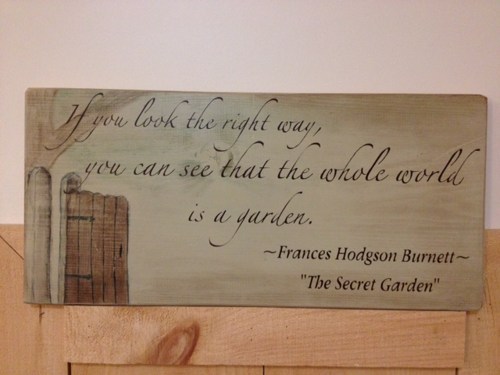 If you look the right way,
you can see that the whole world
is a garden.
~Frances Hodgson Burnett~
"The Secret Garden"